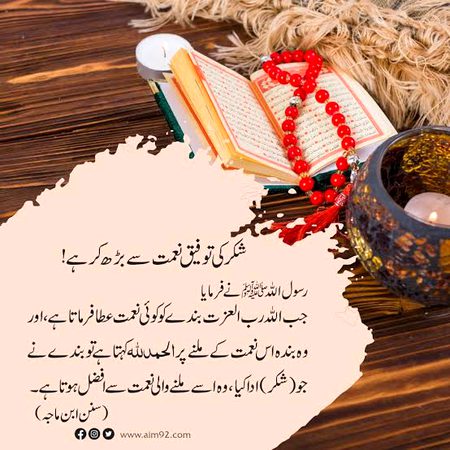 شکر کی توفیق نعمت سے بڑھ کر ہے!
رسول اللہ ﷺ نے فرمایا
جب اللہ رب العزت بندے کو کوئی نعمت عطا فرماتا ہے، اور
وہ بندہ اس نعمت کے ملنے پر الحمدللہ کہتا ہے تو بندے نے
جو (شکر) ادا کیا، وہ اسے ملنے والی نعمت سے افضل ہوتا ہے۔
(سنن ابن ماجہ)
www.aim92.com